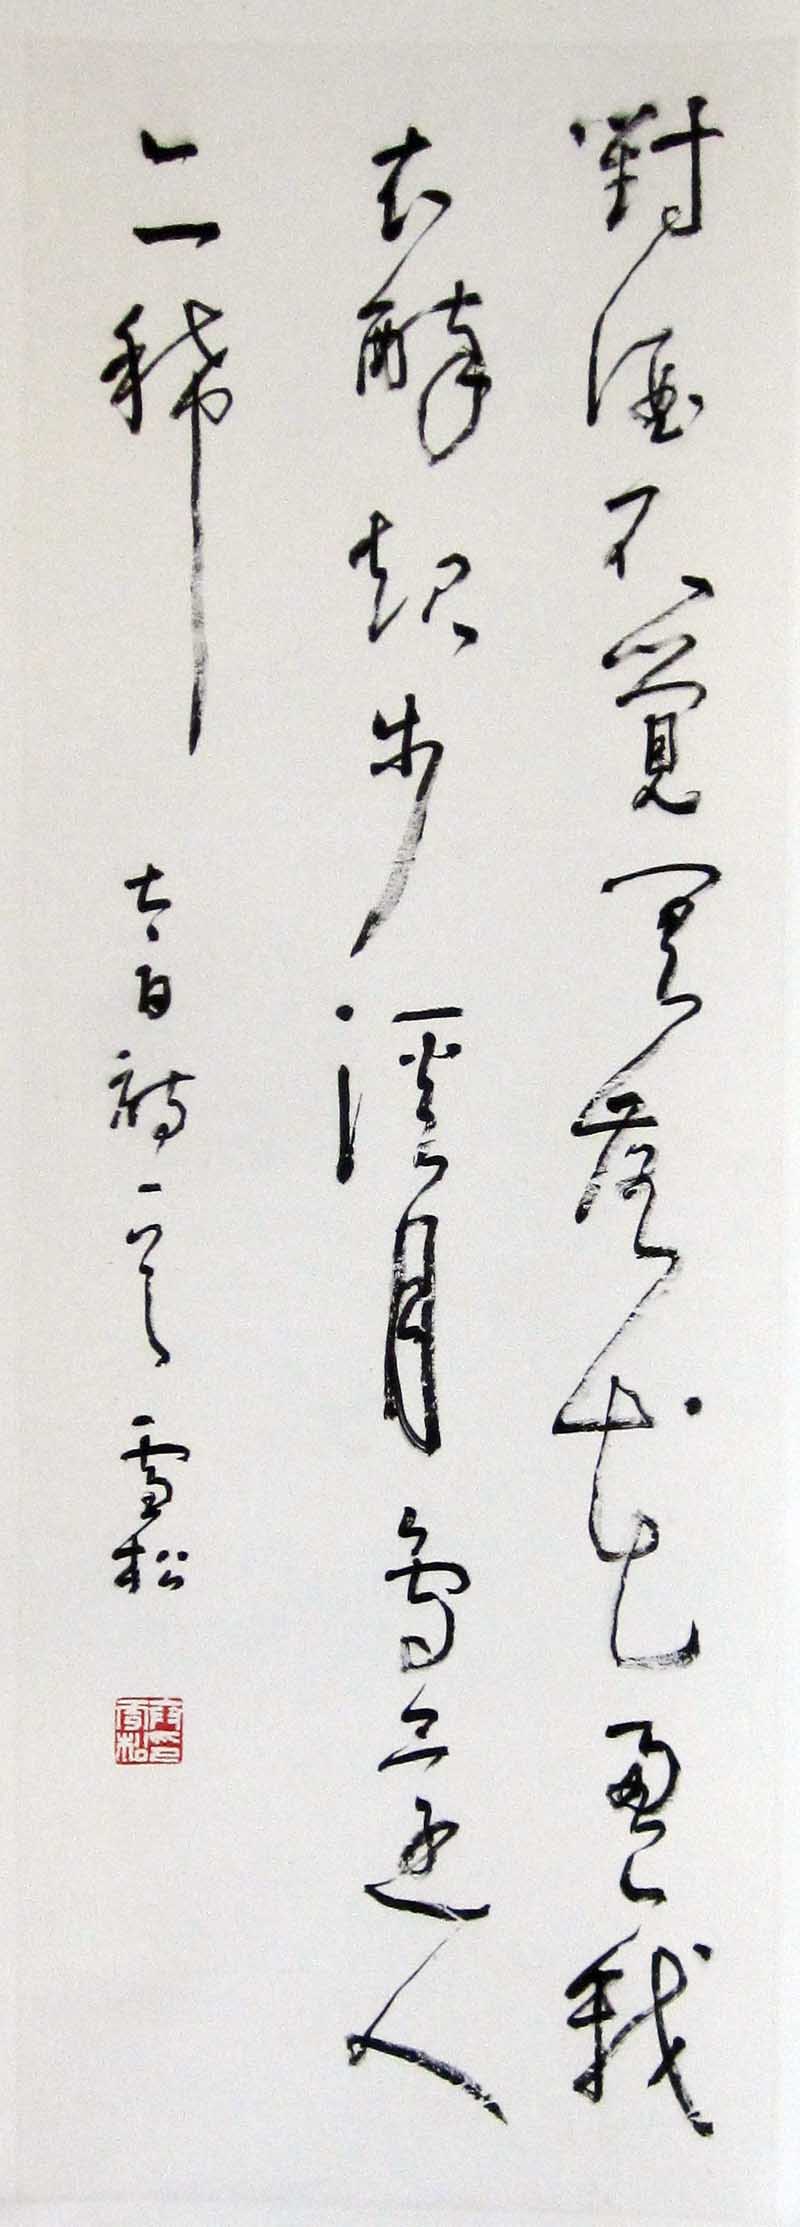 對酒不覺冥落花盈我
衣醉起步溪月鳥還人
亦稀 太白詩一首 雪松